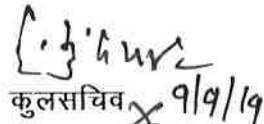 कुलसचिव 9/9/19